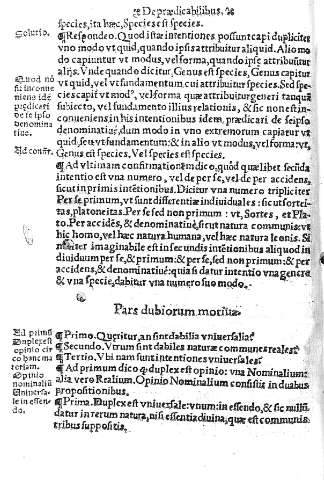 De prædicabilibus,
species, ita hæc, Species est species.
Solutio.
¶ Respondeo. Quod istæ intentiones possunt capi dupliciter
vno modo vt quid, quando ipsis attribuitur aliquid. Alio mo
do capiuntur vt modus, vel forma, quando ipsę attribuitur
alijs. Vnde quando dicitur, Genus est species, Genus capitur
vt quid, vel vt fundamentum cui attribuitur species. Sed spe-
cies capit vt mod°, vel forma quæ attribuitur generi tanquā
subiecto, vel fundamento illius relationis, & sic non est in-
conueniens in his intentionibus idem, prædicari de seipso
denominatiuè, dum modo in vno extremorum capiatur vt
quid, seu vt fundamentum: & in alio vt modus, vel forma: vt,
Genus est species. Vel species est species.
Quod nō
sit in conue
niens ide
prædicari
de se ipso
denomina
tiue.
Ad confir.
¶ Ad vltimam confirmationem dico, quod quælibet secūda
intentio est vna numero, vel de per se, vel de per accidens,
sicut in primis intētionibus. Dicitur vna numero tripliciter
Per se primò, vt sunt differentiæ indiuiduales: sicut sortei-
tas, platoneitas. Per se sed non primum: vt, Sortes, & Pla-
to. Per accidēs, & denominatiuè, sicut natura communis: vt
hic homo, vel hæc natura humana, vel hæc natura leonis. Si
militer imaginabile est in secundis intētionibus aliquod in
diuiduum per se, & primum: & per se, sed non primum: & per
accidens, & denominatiuè: quasi datur intentio vna genere
& vna specie, dabitur vna numero suo modo.
Pars dubiorum motiua.
¶ Primo. Quæritur, an sint dabilia vniuersalia?
¶ Secundo. Vtrum sint dabiles naturæ communes reales?
¶ Tertio. Vbi nam sunt intentiones vniuersales?
¶ Ad primum dico ꝙ duplex est opinio: vna Nominalium:
alia vero Realium. Opinio Nominalium consistit in duabus
propositionibus.
¶ Prima. Duplex est vniuersale: vnum: in essendo, & sic nullū
datur in rerum natura, nisi essentia diuina, quæ est commun-
tribus suppositis.
Ad primū
Duplex est
opinio cir
ca hanc ma
teriam.
Opinio
nominaliū
Vniuersa-
le in essen-
do.